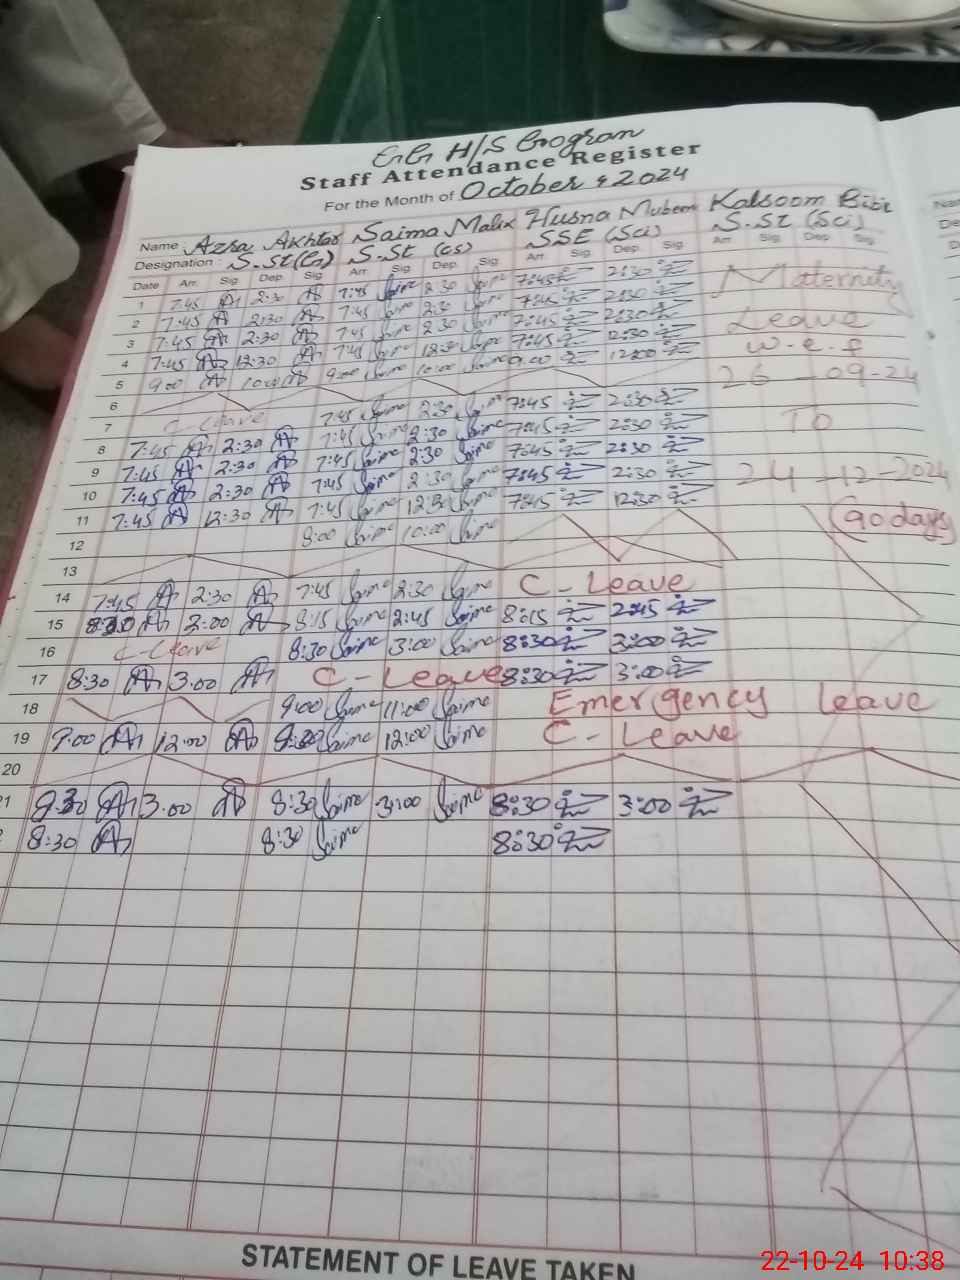 H/S
Staff Attendance Register
For the Month of October, 2024
Name Azra Akhtar Saima Malik Husna Mubeen Kalsoom Bibi
Designation : S.St S.St (cs) SSE (Sci) S.St (Sci)
Date Arr. Sig Dep. Sig Arr. Sig Dep. Sig Arr. Sig Dep. Sig Arr. Sig Dep. Sig
1 7:45 2:30 7:45 Saima 2:30 Saima 7:45 2:30 Maternity
2 7:45 2:30 7:45 Saima 2:30 Saima 7:45 2:30
3 7:45 2:30 7:45 Saima 2:30 Saima 7:45 12:30 Leave
4 7:45 12:30 7:45 Saima 12:30 Saima 7:45 12:00 w.e.f
5 9:00 10:00 9:00 Saima 10:00 Saima 9:00 26-09-24
6
7 C-Leave 7:45 Saima 2:30 Saima 7:45 2:30 To
8 7:45 2:30 7:45 Saima 2:30 Saima 7:45 2:30
9 7:45 2:30 7:45 Saima 2:30 Saima 7:45 2:30
10 7:45 2:30 7:45 Saima 2:30 Saima 7:45 2:30 24-12-2024
11 7:45 12:30 7:45 Saima 12:30 Saima 7:45 12:30
12 8:00 Saima 10:00 Saima (90 days)
13
14 7:45 2:30 7:45 Saima 2:30 Saima C-Leave
15 2:00 8:15 Saima 2:45 Saima 8:15 2:45
16 C-Leave 8:30 Saima 3:00 Saima 8:30 3:00
17 8:30 3.00 C-Leave 8:30 3:00
18 9:00 Saima 11:00 Saima Emergency Leave
19 9:00 12:00 Saima 12:00 Saima C-Leave
20
21 8:30 3.00 8:30 Saima 3:00 Saima 8:30 3:00
8:30 8:30 Saima 8:30
STATEMENT OF LEAVE TAKEN
22-10-24 10:38